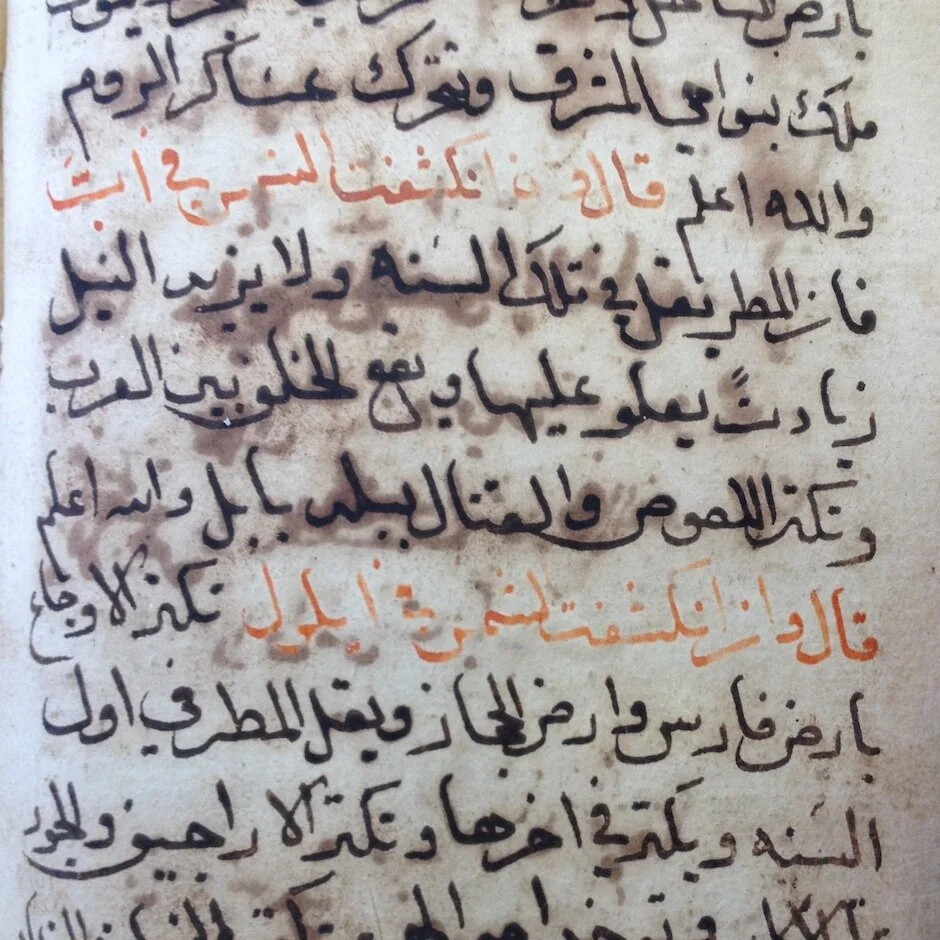 بارض
ملك بنواحي المشرق وتتحرك عساكر الروم
والله اعلم قال وان انكشفت الشمس في اب
فان المطر يقل في تلك السنه ولا يزيد النيل
زيادتً يعلو عليها ويقع الخلف بين العرب
وتكثر اللصوص والقتال ببلد بابل والله اعلم
قال وان انكشفت الشمس في ايلول تكثر الاوجاع
بارض فارس وارض الحجاز ويقل المطر في اول
السنه ويكثر في اخرها وتكثر الاراجيف والجور